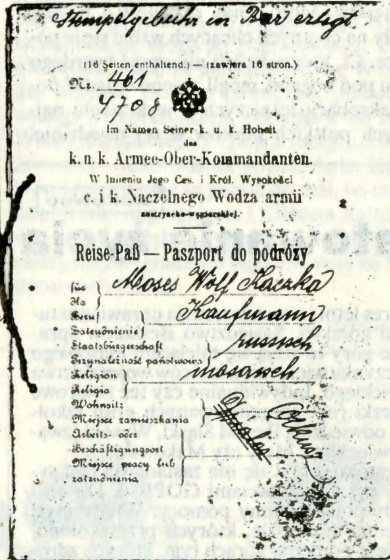 Stempelgebühr in Bar erlegt
(16 Seiten enthaltend.) — (zawiera 16 stron.)
Nr. 461
4708
Im Namen Seiner k. u. k. Hoheit
des
k. u. k. Armee-Ober-Kommandanten.
W Imieniu Jego Ces. i Król. Wysokości
c. i k. Naczelnego Wodza armii
austryacko-węgierskiej.
Reise-Paß — Paszport do podróży
für
dla
Moses Wolf Kaczka
Beruf
Zatrudnienie
Kaufmann
Staatsbürgerschaft
Przynależność państwowa
russisch
Religion
Religia
mosaisch
Wohnsitz
Miejsce zamieszkania
Arbeits- oder
Beschäftigungsort
Miejsce pracy lub
zatrudnienia
Olkusz